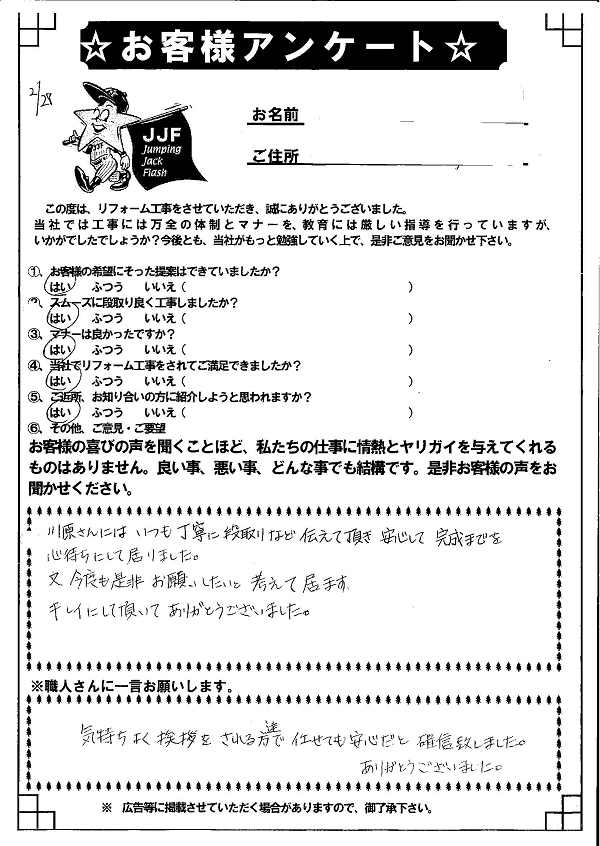 ☆お客様アンケート☆
2/28
JJF
Jumping
Jack
Flash
お名前
ご住所
この度は、リフォーム工事をさせていただき、誠にありがとうございました。
当社では工事には万全の体制とマナーを、教育には厳しい指導を行っていますが、
いかがでしたでしょうか？今後とも、当社がもっと勉強していく上で、是非ご意見をお聞かせ下さい。
①、お客様の希望にそった提案はできていましたか？
はい　ふつう　いいえ（　）
②、スムーズに段取り良く工事しましたか？
はい　ふつう　いいえ（　）
③、マナーは良かったですか？
はい　ふつう　いいえ（　）
④、当社でリフォーム工事をされてご満足できましたか？
はい　ふつう　いいえ（　）
⑤、ご近所、お知り合いの方に紹介しようと思われますか？
はい　ふつう　いいえ（　）
⑥、その他、ご意見・ご要望
お客様の喜びの声を聞くことほど、私たちの仕事に情熱とヤリガイを与えてくれる
ものはありません。良い事、悪い事、どんな事でも結構です。是非お客様の声をお
聞かせください。
川原さんには いつも丁寧に 段取りなど 伝えて頂き 安心して 完成までを
心待ちにして居りました。
又 今度も是非 お願いしたいと 考えて居ます
キレイにして頂いて ありがとうございました。
※職人さんに一言お願いします。
気持ちよく挨拶を される方達で 任せても安心だと 確信致しました。
ありがとうございました。
※ 広告等に掲載させていただく場合がありますので、御了承下さい。